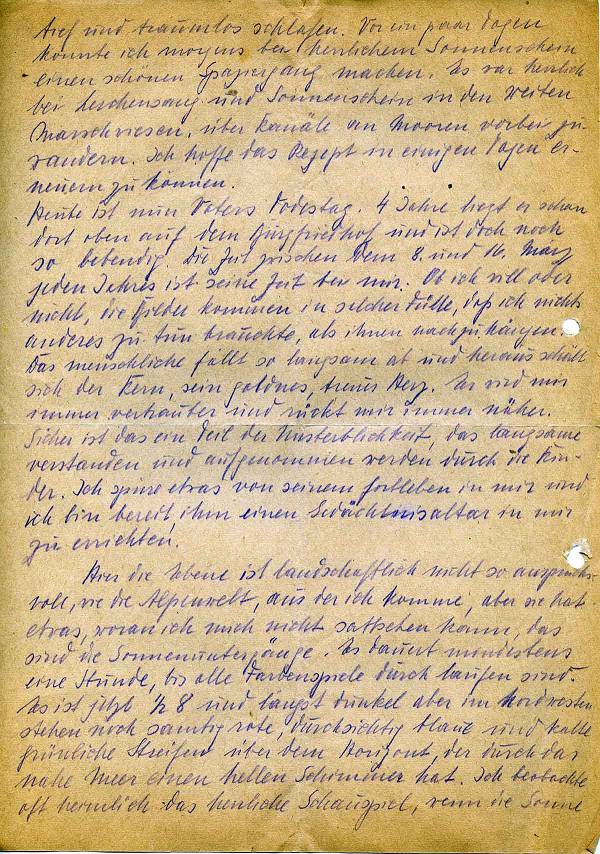 tief und traumlos schlafen. Vor ein paar Tagen
konnte ich morgens bei herrlichem Sonnenschein
einen schönen Spaziergang machen. Es war herrlich
bei Lerchensang und Sonnenschein in den weiten
Marschwiesen, über Kanäle an Mooren vorbei zu
wandern. Ich hoffe das Rezept in einigen Tagen er-
neuern zu können.
Heute ist nun Vaters Todestag. 4 Jahre liegt er schon
dort oben auf dem Bergfriedhof und ist doch noch
so lebendig. Die Zeit zwischen dem 8. und 16. März
jeden Jahres ist seine Zeit bei mir. Ob ich will oder
nicht, die Bilder kommen in solcher Fülle, daß ich nichts
anderes zu tun brauchte, als ihnen nachzuhängen.
Das menschliche fällt so langsam ab und heraus schält
sich der Kern, sein goldnes, treues Herz. Er wird mir
immer vertrauter und rückt mir immer näher.
Sicher ist das ein Teil der Unsterblichkeit, das langsame
verstanden und aufgenommen werden durch die Kin-
der. Ich spüre etwas von seinem Fortleben in mir und
ich bin bereit, ihm einen Gedächtnisaltar in mir
zu errichten.
Hier die Ebene ist landschaftlich nicht so anspruchs-
voll, wie die Alpenwelt, aus der ich komme, aber sie hat
etwas, woran ich mich nicht sattsehen kann, das
sind die Sonnenuntergänge. Es dauert mindestens
eine Stunde, bis alle Farbenspiele durchlaufen sind.
Es ist jetzt ½ 8 und längst dunkel aber im Nordwesten
stehen noch samtigrote, durchsichtig blaue und kalte
grünliche Streifen über dem Horizont, der durch das
nahe Meer einen hellen Schimmer hat. Ich beobachte
oft heimlich das herrliche Schauspiel, wenn die Sonne